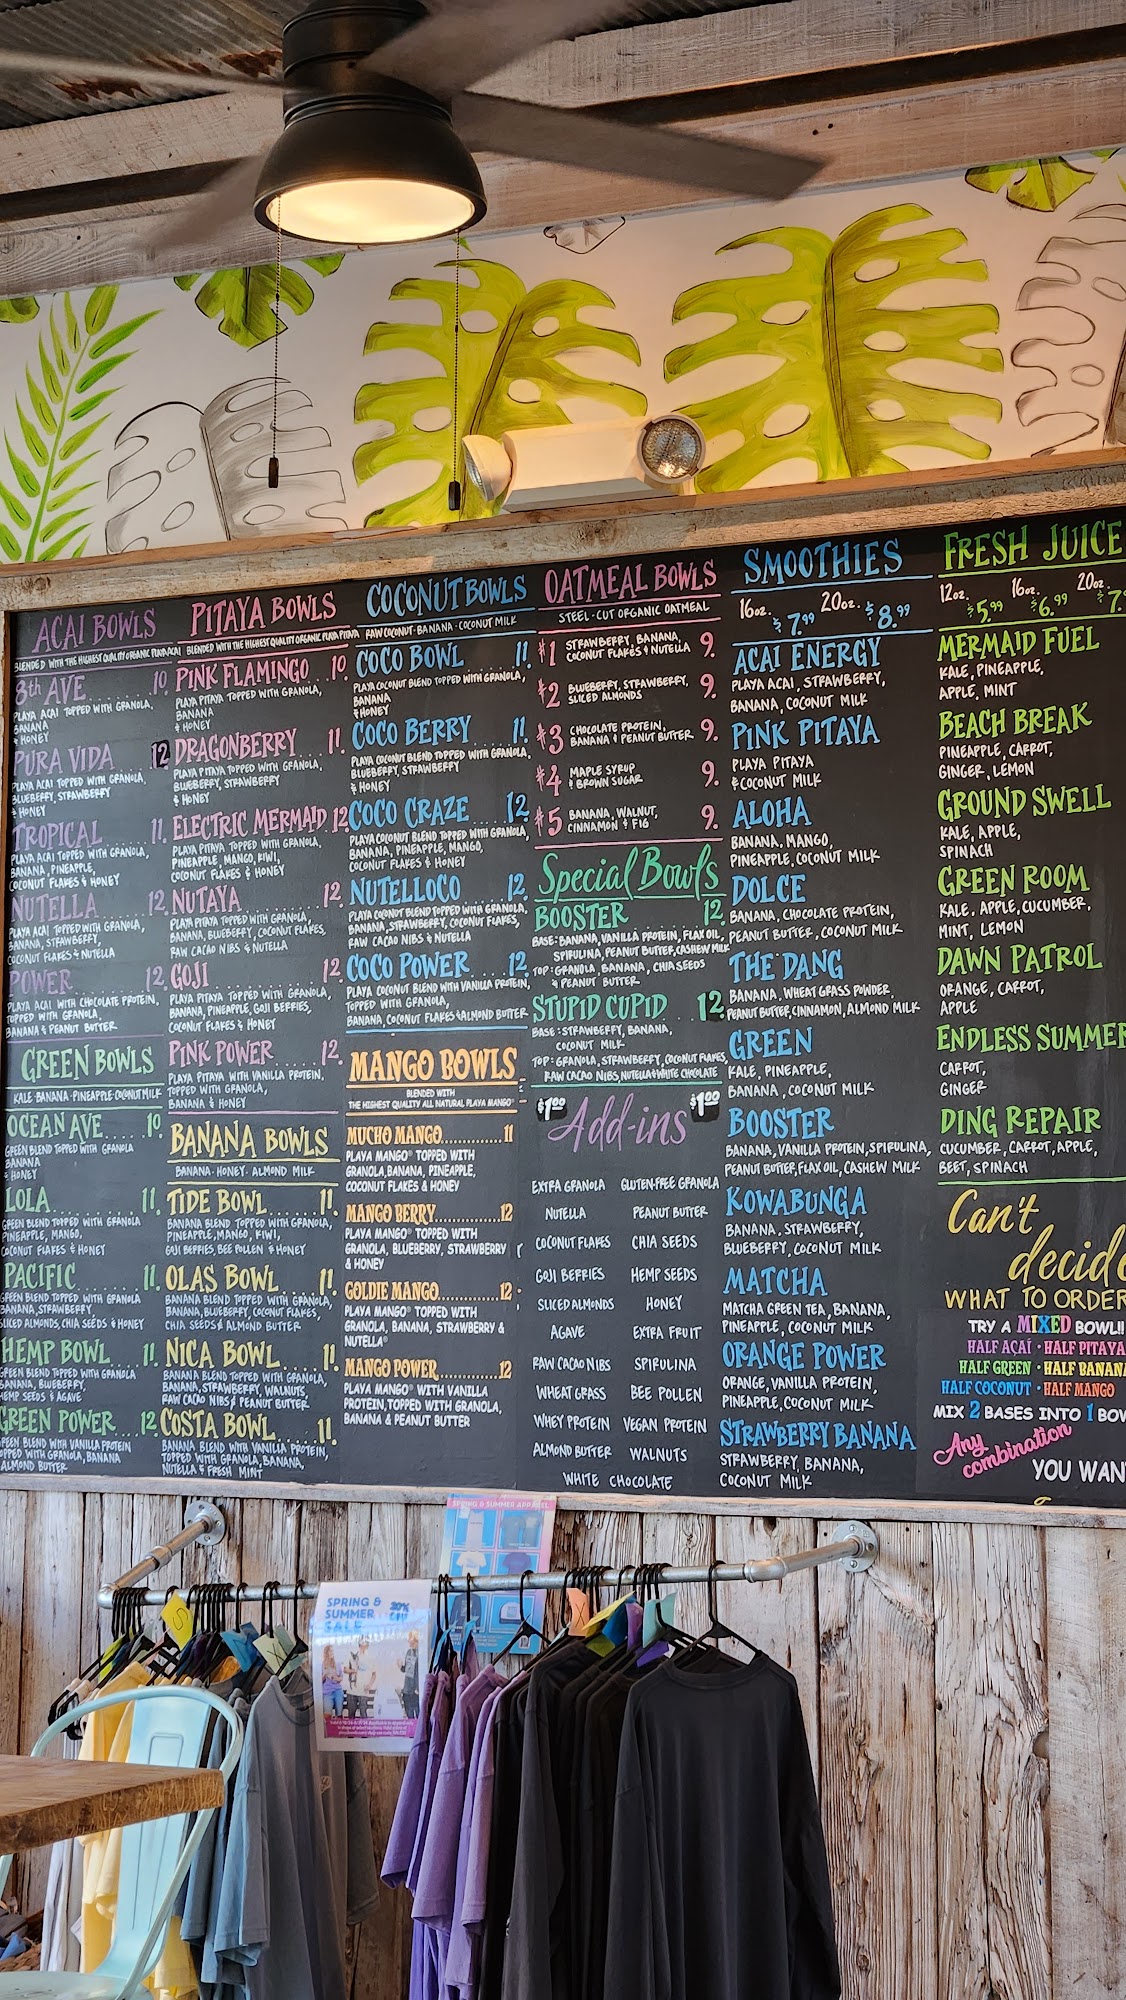 ACAI BOWLS
BLENDED WITH THE HIGHEST QUALITY ORGANIC PLAYA ACAI
8th AVE 10.
PLAYA ACAI TOPPED WITH GRANOLA,
BANANA
& HONEY
PURA VIDA 12
PLAYA ACAI TOPPED WITH GRANOLA,
BLUEBERRY, STRAWBERRY
& HONEY
TROPICAL 11.
PLAYA ACAI TOPPED WITH GRANOLA,
BANANA, PINEAPPLE,
COCONUT FLAKES & HONEY
NUTELLA 12.
PLAYA ACAI TOPPED WITH GRANOLA,
BANANA, STRAWBERRY,
COCONUT FLAKES & NUTELLA
POWER 12.
PLAYA ACAI WITH CHOCOLATE PROTEIN,
TOPPED WITH GRANOLA,
BANANA & PEANUT BUTTER
GREEN BOWLS
KALE·BANANA·PINEAPPLE·COCONUT MILK
OCEAN AVE 10.
GREEN BLEND TOPPED WITH GRANOLA
BANANA
& HONEY
LOLA 11.
GREEN BLEND TOPPED WITH GRANOLA
PINEAPPLE, MANGO,
COCONUT FLAKES & HONEY
PACIFIC 11.
GREEN BLEND TOPPED WITH GRANOLA
BANANA, STRAWBERRY,
SLICED ALMONDS, CHIA SEEDS & HONEY
HEMP BOWL 11.
GREEN BLEND TOPPED WITH GRANOLA
BANANA, BLUEBERRY,
HEMP SEEDS & AGAVE
GREEN POWER 12
GREEN BLEND WITH VANILLA PROTEIN
TOPPED WITH GRANOLA, BANANA
& ALMOND BUTTER
PITAYA BOWLS
BLENDED WITH THE HIGHEST QUALITY ORGANIC PLAYA PITAYA
PINK FLAMINGO 10.
PLAYA PITAYA TOPPED WITH GRANOLA,
BANANA
& HONEY
DRAGONBERRY 11.
PLAYA PITAYA TOPPED WITH GRANOLA,
BLUEBERRY, STRAWBERRY
& HONEY
ELECTRIC MERMAID 12.
PLAYA PITAYA TOPPED WITH GRANOLA,
PINEAPPLE, MANGO, KIWI,
COCONUT FLAKES & HONEY
NUTAYA 12.
PLAYA PITAYA TOPPED WITH GRANOLA,
BANANA, BLUEBERRY, COCONUT FLAKES,
RAW CACAO NIBS & NUTELLA
GOJI 12.
PLAYA PITAYA TOPPED WITH GRANOLA,
BANANA, PINEAPPLE, GOJI BERRIES,
COCONUT FLAKES & HONEY
PINK POWER 12.
PLAYA PITAYA WITH VANILLA PROTEIN,
TOPPED WITH GRANOLA,
BANANA & HONEY
BANANA BOWLS
BANANA·HONEY·ALMOND MILK
TIDE BOWL 11.
BANANA BLEND TOPPED WITH GRANOLA,
PINEAPPLE, MANGO, KIWI,
GOJI BERRIES, BEE POLLEN & HONEY
OLAS BOWL 11.
BANANA BLEND TOPPED WITH GRANOLA,
BANANA, BLUEBERRY, COCONUT FLAKES,
CHIA SEEDS & ALMOND BUTTER
NICA BOWL 11.
BANANA BLEND TOPPED WITH GRANOLA,
BANANA, STRAWBERRY, WALNUTS,
RAW CACAO NIBS & PEANUT BUTTER
COSTA BOWL 11.
BANANA BLEND WITH VANILLA PROTEIN,
TOPPED WITH GRANOLA, BANANA,
NUTELLA & FRESH MINT
COCONUT BOWLS
RAW COCONUT·BANANA·COCONUT MILK
COCO BOWL 11.
PLAYA COCONUT BLEND TOPPED WITH GRANOLA,
BANANA
& HONEY
COCO BERRY 11.
PLAYA COCONUT BLEND TOPPED WITH GRANOLA,
BLUEBERRY, STRAWBERRY
& HONEY
COCO CRAZE 12
PLAYA COCONUT BLEND TOPPED WITH GRANOLA,
BANANA, PINEAPPLE, MANGO,
COCONUT FLAKES & HONEY
NUTELLOCO 12.
PLAYA COCONUT BLEND TOPPED WITH GRANOLA,
BANANA, STRAWBERRY, COCONUT FLAKES,
RAW CACAO NIBS & NUTELLA
COCO POWER 12.
PLAYA COCONUT BLEND WITH VANILLA PROTEIN,
TOPPED WITH GRANOLA,
BANANA, COCONUT FLAKES & ALMOND BUTTER
MANGO BOWLS
BLENDED WITH
THE HIGHEST QUALITY ALL NATURAL PLAYA MANGO®
MUCHO MANGO 11
PLAYA MANGO® TOPPED WITH
GRANOLA, BANANA, PINEAPPLE,
COCONUT FLAKES & HONEY
MANGO BERRY 12
PLAYA MANGO® TOPPED WITH
GRANOLA, BLUEBERRY, STRAWBERRY
& HONEY
GOLDIE MANGO 12
PLAYA MANGO® TOPPED WITH
GRANOLA, BANANA, STRAWBERRY &
NUTELLA®
MANGO POWER 12
PLAYA MANGO® WITH VANILLA
PROTEIN, TOPPED WITH GRANOLA,
BANANA & PEANUT BUTTER
OATMEAL BOWLS
STEEL-CUT ORGANIC OATMEAL
#1 STRAWBERRY, BANANA, 9.
COCONUT FLAKES & NUTELLA
#2 BLUEBERRY, STRAWBERRY, 9.
SLICED ALMONDS
#3 CHOCOLATE PROTEIN, 9.
BANANA & PEANUT BUTTER
#4 MAPLE SYRUP 9.
& BROWN SUGAR
#5 BANANA, WALNUT, 9.
CINNAMON & FIG
Special Bowls
BOOSTER 12.
BASE: BANANA, VANILLA PROTEIN, FLAX OIL,
SPIRULINA, PEANUT BUTTER, CASHEW MILK
TOP: GRANOLA, BANANA, CHIA SEEDS
& PEANUT BUTTER
STUPID CUPID 12
BASE: STRAWBERRY, BANANA,
COCONUT MILK
TOP: GRANOLA, STRAWBERRY, COCONUT FLAKES,
RAW CACAO NIBS, NUTELLA & WHITE CHOCOLATE
$1.00 Add-ins $1.00
EXTRA GRANOLA GLUTEN-FREE GRANOLA
NUTELLA PEANUT BUTTER
COCONUT FLAKES CHIA SEEDS
GOJI BERRIES HEMP SEEDS
SLICED ALMONDS HONEY
AGAVE EXTRA FRUIT
RAW CACAO NIBS SPIRULINA
WHEAT GRASS BEE POLLEN
WHEY PROTEIN VEGAN PROTEIN
ALMOND BUTTER WALNUTS
WHITE CHOCOLATE
SMOOTHIES
16oz. $7.99 20oz. $8.99
ACAI ENERGY
PLAYA ACAI, STRAWBERRY,
BANANA, COCONUT MILK
PINK PITAYA
PLAYA PITAYA
& COCONUT MILK
ALOHA
BANANA, MANGO,
PINEAPPLE, COCONUT MILK
DOLCE
BANANA, CHOCOLATE PROTEIN,
PEANUT BUTTER, COCONUT MILK
THE DANG
BANANA, WHEAT GRASS POWDER,
PEANUT BUTTER, CINNAMON, ALMOND MILK
GREEN
KALE, PINEAPPLE,
BANANA, COCONUT MILK
BOOSTER
BANANA, VANILLA PROTEIN, SPIRULINA,
PEANUT BUTTER, FLAX OIL, CASHEW MILK
KOWABUNGA
BANANA, STRAWBERRY,
BLUEBERRY, COCONUT MILK
MATCHA
MATCHA GREEN TEA, BANANA,
PINEAPPLE, COCONUT MILK
ORANGE POWER
ORANGE, VANILLA PROTEIN,
PINEAPPLE, COCONUT MILK
STRAWBERRY BANANA
STRAWBERRY, BANANA,
COCONUT MILK
FRESH JUICE
12oz. $5.99 16oz. $6.99 20oz. $7.
MERMAID FUEL
KALE, PINEAPPLE,
APPLE, MINT
BEACH BREAK
PINEAPPLE, CARROT,
GINGER, LEMON
GROUND SWELL
KALE, APPLE,
SPINACH
GREEN ROOM
KALE, APPLE, CUCUMBER,
MINT, LEMON
DAWN PATROL
ORANGE, CARROT,
APPLE
ENDLESS SUMMER
CARROT,
GINGER
DING REPAIR
CUCUMBER, CARROT, APPLE,
BEET, SPINACH
Can't
decide
WHAT TO ORDER
TRY A MIXED BOWL!!
HALF AÇAÍ · HALF PITAYA
HALF GREEN · HALF BANANA
HALF COCONUT · HALF MANGO
MIX 2 BASES INTO 1 BOW
Any
combination
YOU WAN
SPRING & SUMMER APPAREL
SPRING &
SUMMER
SALE
20%
OFF